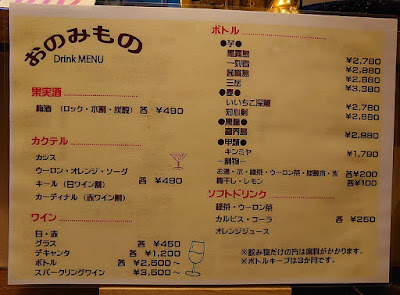 おのみもの
Drink MENU
果実酒
梅酒 (ロック・水割・炭酸) 各 ¥490
カクテル
カシス
ウーロン・オレンジ・ソーダ
キール (白ワイン割) 各 ¥490
カーディナル (赤ワイン割)
ワイン
白・赤
グラス 各 ¥450
デキャンタ 各 ¥1,200
ボトル 各 ¥2,500～
スパークリングワイン ¥3,500～
ボトル
●芋●
黒霧島 ¥2,790
一刻者 ¥2,880
茜霧島 ¥2,880
三岳 ¥3,380
●麦●
いいちこ深薫 ¥2,780
知心剣 ¥2,880
●黒糖●
喜界島 ¥2,980
●甲類●
キンミヤ ¥1,790
ー割物ー
お湯・水・緑茶・ウーロン茶・炭酸水・氷 各¥200
梅干し・レモン 各¥100
ソフトドリンク
緑茶・ウーロン茶
カルピス・コーラ 各 ¥250
オレンジジュース
※飲み物だけの方は席料がかかります。
※ボトルキープは3か月です。